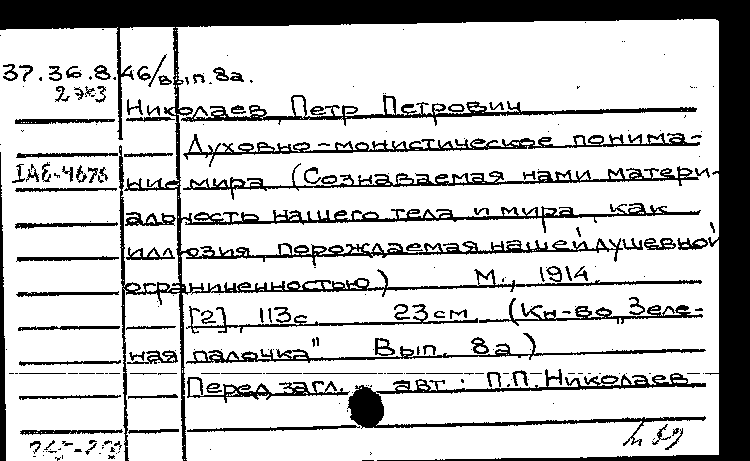 37.36.8.46/вып.8а.
2 экз
Николаев, Петр Петрович
Духовно-монистическое понима-
IAE-4676 ние мира (Сознаваемая нами матери-
альность нашего тела и мира, как
иллюзия, порождаемая нашей душевной
ограниченностью) М., 1914.
[2], 113с. 23см. (Кн-во „Зеле-
ная палочка" Вып. 8а)
Перед загл. авт: П.П.Николаев